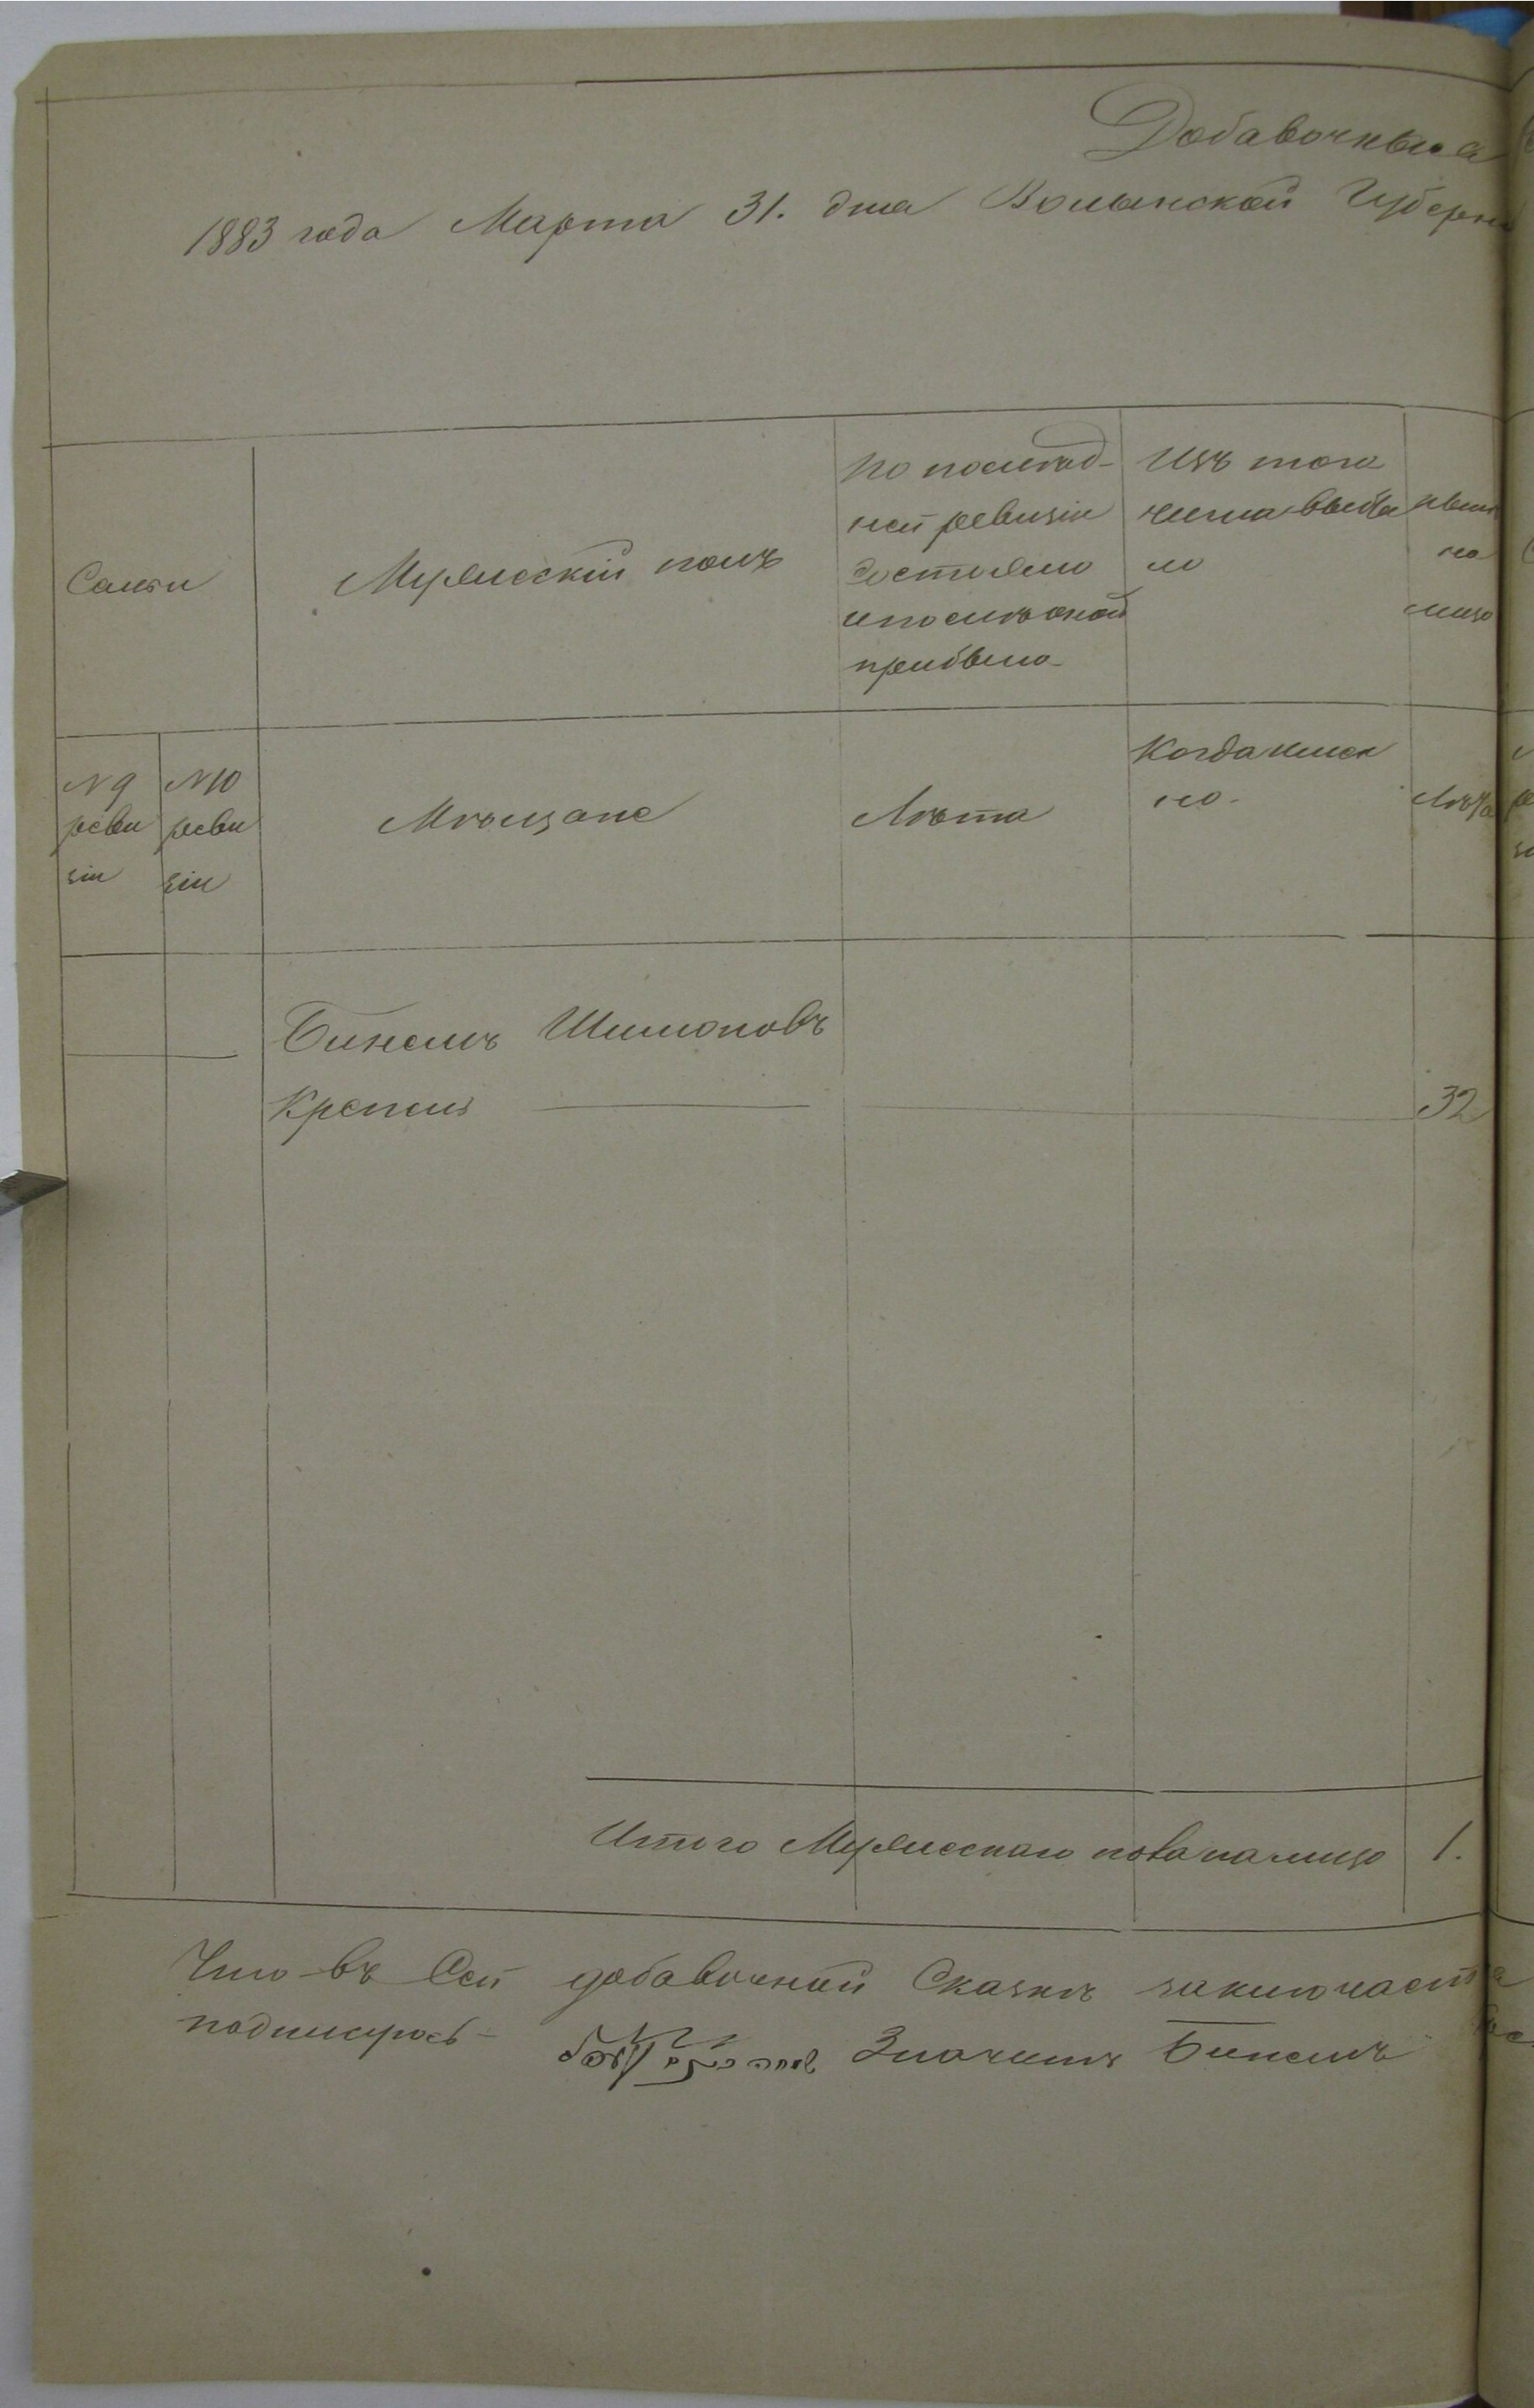 Добавочныя
1883 года Марта 31. дня Волынской Губерні
Семьи
Мужескій полъ
По послѣд-
ней ревизіи
состояло
и послѣ оной
прибыло
Изъ того
числа выбы
ло
нынѣ
на
лицо
№ 9
реви
зіи
№ 10
реви
зіи
Мѣщане
Лѣта
Когда имен
но.
Лѣта
Бинемъ Шимоновъ
32
Итого Мужескаго пола на лицо 1.
Что въ Сей добавочной Сказкѣ заключается
подписуюсь
Значитъ Бинемъ